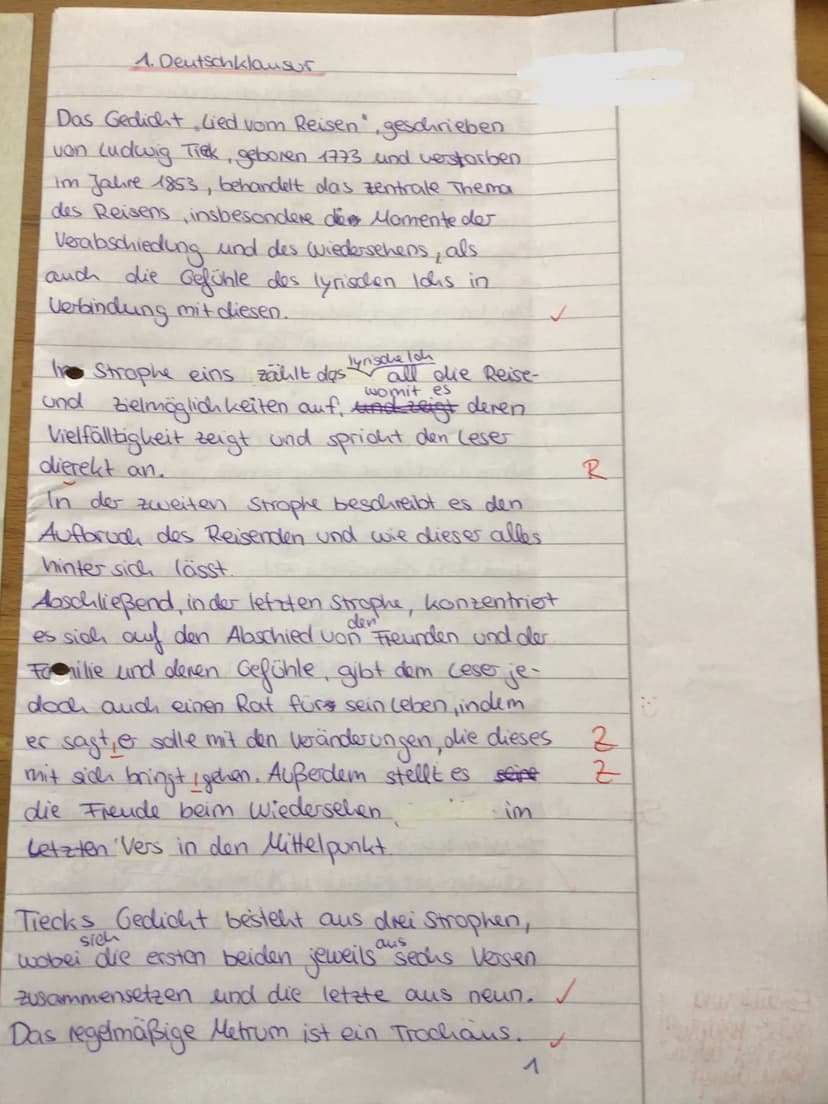 1. Deutschklausur
Das Gedicht „Lied vom Reisen", geschrieben
von Ludwig Tiek, geboren 1773 und verstorben
im Jahre 1853, behandelt das zentrale Thema
des Reisens, insbesondere die Momente der
Verabschiedung und des Wiedersehens, als
auch die Gefühle des lyrischen Ichs in
Verbindung mit diesen. ✓
In Strophe eins zählt das lyrische Ich all die Reise-
und Zielmöglichkeiten auf, womit es und zeigt deren
Vielfälltigkeit zeigt und spricht den Leser
dierekt an. R
In der zweiten Strophe beschreibt es den
Aufbruch des Reisenden und wie dieser alles
hinter sich lässt.
Abschließend, in der letzten Strophe, konzentriert
es sich auf den Abschied von den Freunden und der
Familie und deren Gefühle, gibt dem Leser je-
doch auch einen Rat für sein Leben, indem
er sagt, er solle mit den Veränderungen, die dieses Z
mit sich bringt, gehen. Außerdem stellt es seine Z
die Freude beim Wiedersehen im
letzten Vers in den Mittelpunkt.
Tiecks Gedicht besteht aus drei Strophen,
wobei sich die ersten beiden jeweils aus sechs Versen
zusammensetzen und die letzte aus neun. ✓
Das regelmäßige Metrum ist ein Trochäus. ✓
1